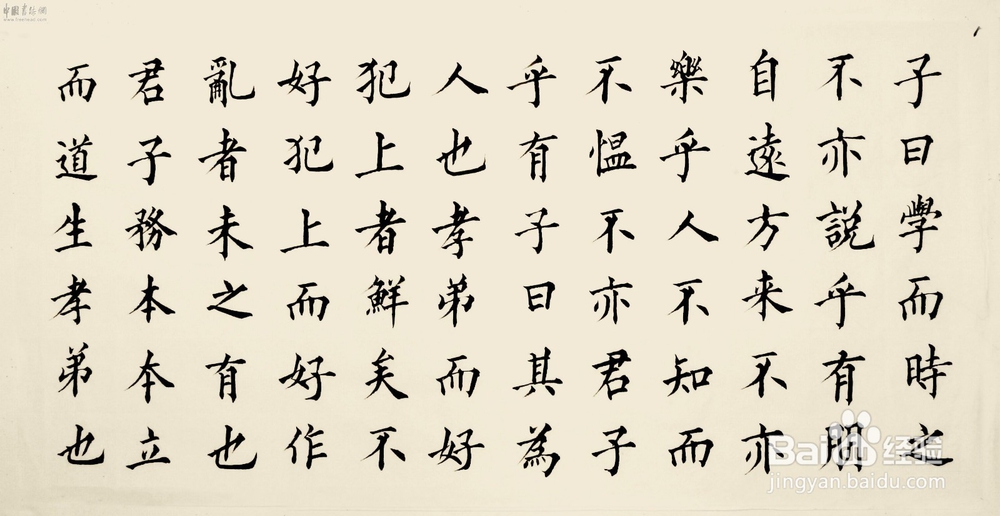 子曰學而時
不亦說乎有朋
自遠方来不亦
樂乎人不知而
不愠不亦君子
乎有子曰其為
人也孝弟而好
犯上者鮮矣不
好犯上而好作
亂者未之有也
君子務本本立
而道生孝弟也
中國書法網
Baidu经验
jingyan.baidu.com